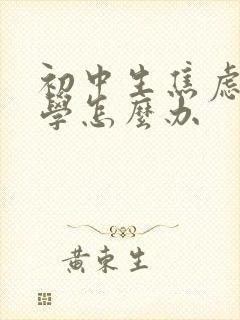 初中生焦虑
學怎麼办
黄東生